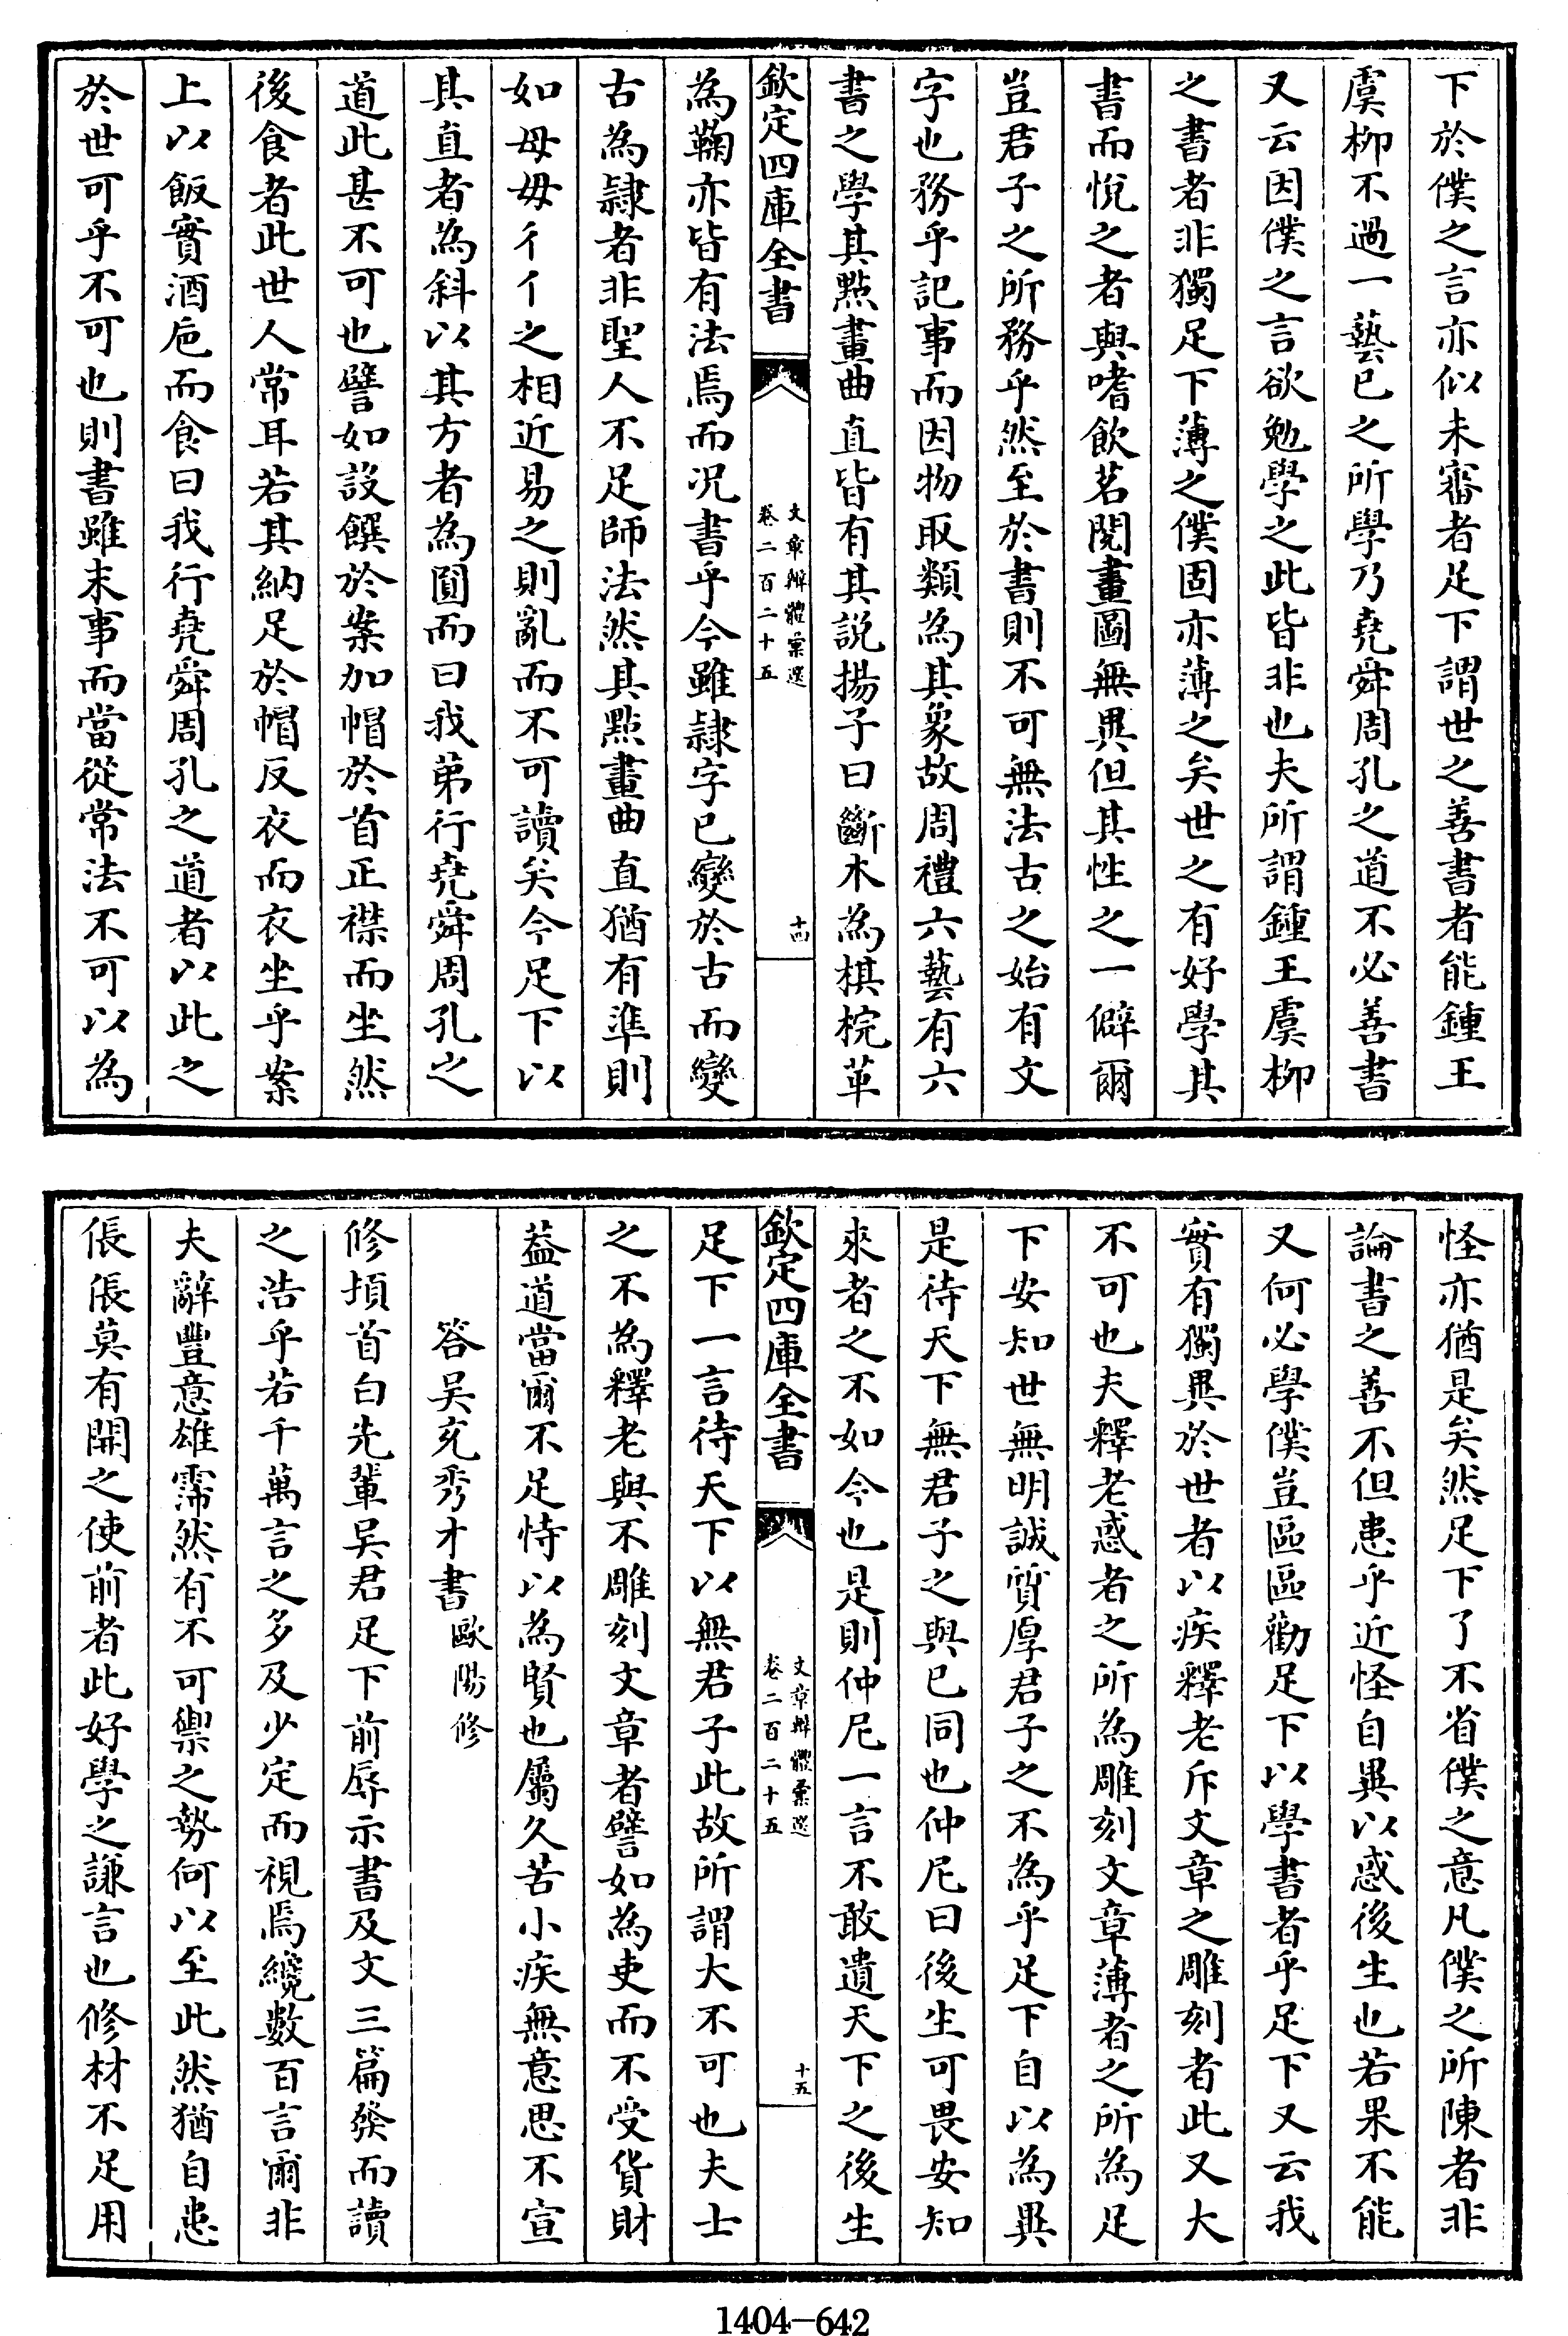 下於僕之言亦似未審者足下謂世之善書者能鍾王
虞柳不過一藝已之所學乃堯舜周孔之道不必善書
又云因僕之言欲勉學之此皆非也夫所謂鍾王虞柳
之書者非獨足下薄之僕固亦薄之矣世之有好學其
書而悅之者與嗜飲茗閱畫圖無異但其性之一僻爾
豈君子之所務乎然至於書則不可無法古之始有文
字也務乎記事而因物取類為其象故周禮六藝有六
書之學其點畫曲直皆有其説揚子曰斷木為棋梡革
欽定四庫全書
文章辨體彙選
卷二百二十五
十四
為鞠亦皆有法焉而况書乎今雖隷字已變於古而變
古為隷者非聖人不足師法然其點畫曲直猶有準則
如母毋彳亻之相近易之則亂而不可讀矣今足下以
其直者為斜以其方者為圓而曰我第行堯舜周孔之
道此甚不可也譬如設饌於案加帽於首正襟而坐然
後食者此世人常耳若其納足於帽反衣而衣坐乎案
上以飯實酒巵而食曰我行堯舜周孔之道者以此之
於世可乎不可也則書雖末事而當從常法不可以為
怪亦猶是矣然足下了不省僕之意凡僕之所陳者非
論書之善不但患乎近怪自異以惑後生也若果不能
又何必學僕豈區區勸足下以學書者乎足下又云我
實有獨異於世者以疾釋老斥文章之雕刻者此又大
不可也夫釋老惑者之所為雕刻文章薄者之所為足
下安知世無明誠質厚君子之不為乎足下自以為異
是待天下無君子之與已同也仲尼曰後生可畏安知
來者之不如今也是則仲尼一言不敢遺天下之後生
欽定四庫全書
文章辨體彙選
卷二百二十五
十五
足下一言待天下以無君子此故所謂大不可也夫士
之不為釋老與不雕刻文章者譬如為吏而不受貨財
葢道當爾不足恃以為賢也屬久苦小疾無意思不宣
答吴充秀才書歐陽修
修頓首白先輩吴君足下前辱示書及文三篇發而讀
之浩乎若千萬言之多及少定而視焉纔數百言爾非
夫辭豐意雄霈然有不可禦之勢何以至此然猶自患
倀倀莫有開之使前者此好學之謙言也修材不足用
1404-642